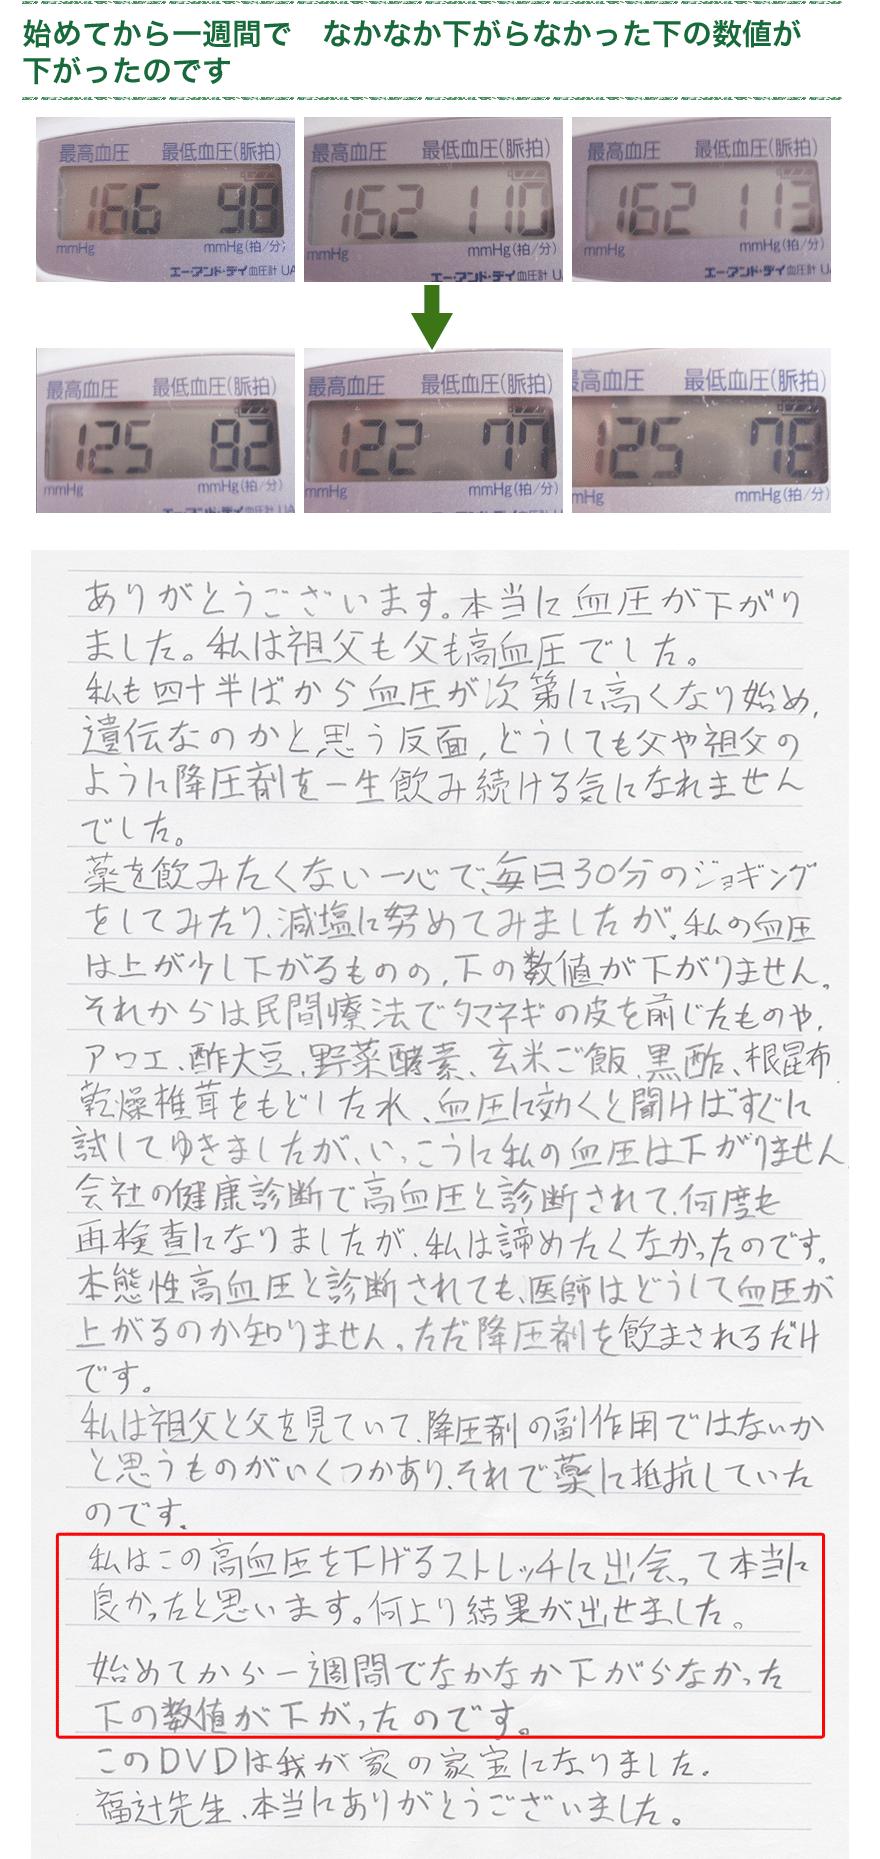 始めてから一週間で　なかなか下がらなかった下の数値が
下がったのです
最高血圧 最低血圧(脈拍)
166 98
mmHg mmHg(拍/分)
エー・アンド・デイ血圧計 UA
最高血圧 最低血圧(脈拍)
162 110
mmHg mmHg(拍/分)
エー・アンド・デイ血圧計 UA
最高血圧 最低血圧(脈拍)
162 113
mmHg mmHg(拍/分)
エー・アンド・デイ血圧計 U
最高血圧 最低血圧(脈拍)
125 82
mmHg mmHg(拍/分)
エー・アンド・デイ血圧計 UA
最高血圧 最低血圧(脈拍)
122 77
mmHg mmHg(拍/分)
最高血圧 最低血圧(脈拍)
125 78
mmHg mmHg(拍/分)
ありがとうございます。本当に血圧が下がり
ました。私は祖父も父も高血圧でした。
私も四十半ばから血圧が次第に高くなり始め、
遺伝なのかと思う反面、どうしても父や祖父の
ように降圧剤を一生飲み続ける気になれません
でした。
薬を飲みたくない一心で、毎日30分のジョギング
をしてみたり、減塩に努めてみましたが、私の血圧
は上が少し下がるものの、下の数値が下がりません。
それからは民間療法でタマネギの皮を煎じたものや、
アロエ、酢大豆、野菜酵素、玄米ご飯、黒酢、根昆布、
乾燥椎茸をもどした水、血圧に効くと聞けばすぐに
試してゆきましたが、いっこうに私の血圧は下がりません
会社の健康診断で高血圧と診断されて、何度も
再検査になりましたが、私は諦めたくなかったのです。
本態性高血圧と診断されても、医師はどうして血圧が
上がるのか知りません。ただ降圧剤を飲まされるだけ
です。
私は祖父と父を見ていて、降圧剤の副作用ではないか
と思うものがいくつかあり、それで薬に抵抗していた
のです。
私はこの高血圧を下げるストレッチに出会って本当に
良かったと思います。何より結果が出せました。
始めてから一週間でなかなか下がらなかった
下の数値が下がったのです。
このDVDは我が家の家宝になりました。
福辻先生、本当にありがとうございました。